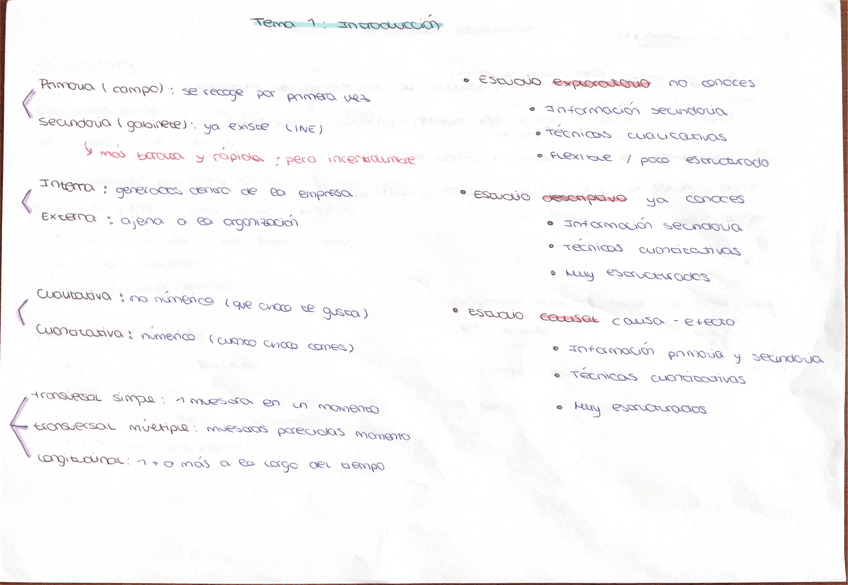 Tema 1: Introducción
Primaria (campo): se recoge por primera vez
Secundaria (gabinete): ya existe (INE)
↳ más barata y rápida: pero incertidumbre
Interna: generados dentro de la empresa
Externa: ajena a la organización
Cualitativa: no númerico (que choco te gusta)
Cuantitativa: númerico (cuanto choco comes)
transversal simple: 1 muestra en un momento
transversal múltiple: muestras parecidas momento
Longitudinal: 1 + o más a lo largo del tiempo
• Estudio exploratorio no conoces
• Información secundaria
• Técnicas cualitativas
• Flexible / poco estructurado
• Estudio descriptivo ya conoces
• Información secundaria
• Técnicas cuantitativas
• Muy estructurados
• Estudio causal causa - efecto
• Información primaria y secundaria
• Técnicas cuantitativas
• Muy estructurados